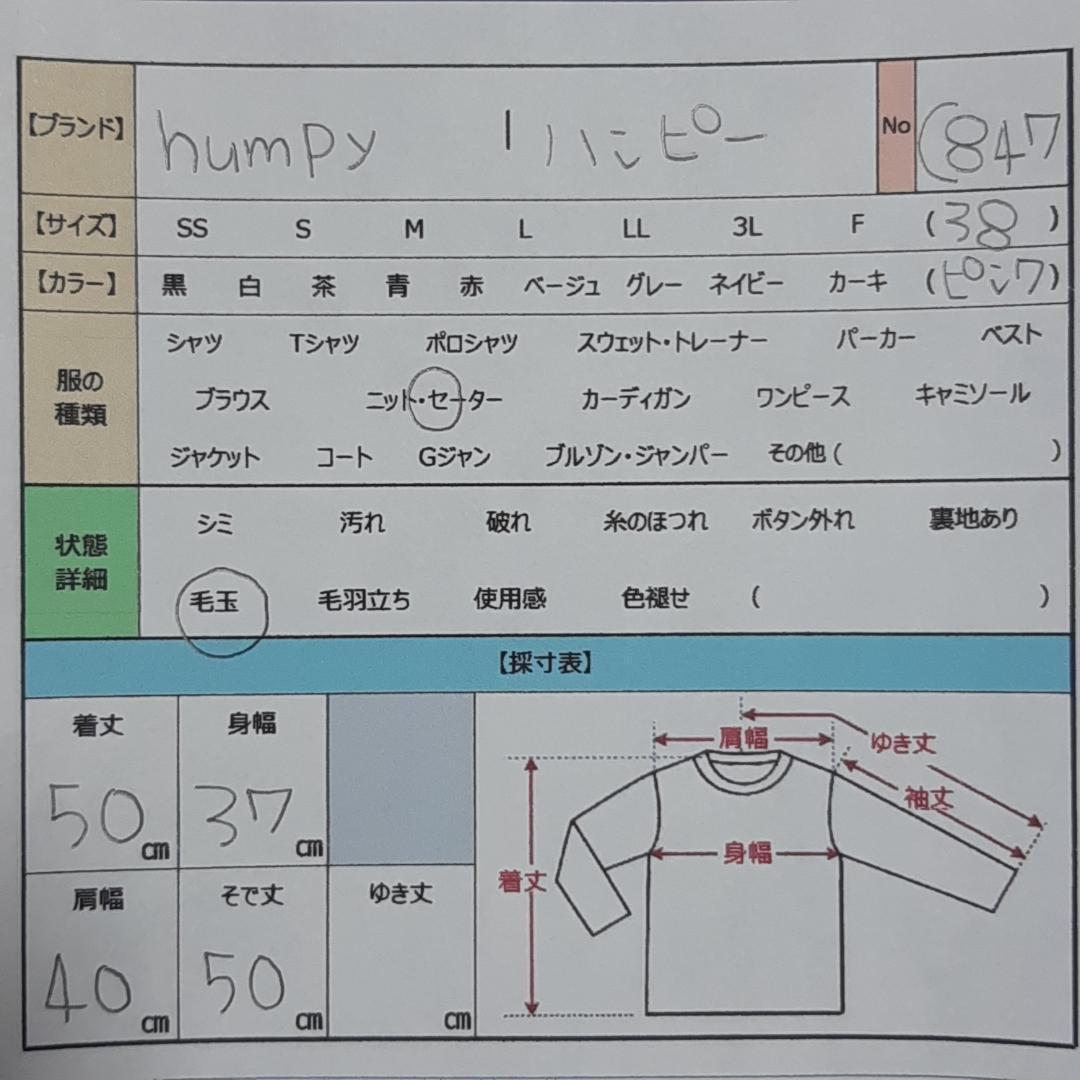 【ブランド】 humpy | ハンピー No (847
【サイズ】 SS S M L LL 3L F (38)
【カラー】 黒 白 茶 青 赤 ベージュ グレー ネイビー カーキ (ピンク)
服の種類
シャツ Tシャツ ポロシャツ スウェット・トレーナー パーカー ベスト
ブラウス ニット・セーター カーディガン ワンピース キャミソール
ジャケット コート Gジャン ブルゾン・ジャンパー その他( )
状態詳細
シミ 汚れ 破れ 糸のほつれ ボタン外れ 裏地あり
毛玉 毛羽立ち 使用感 色褪せ ( )
【採寸表】
着丈 身幅
50cm 37cm
肩幅 そで丈 ゆき丈
40cm 50cm cm
肩幅 ゆき丈
袖丈
身幅
着丈